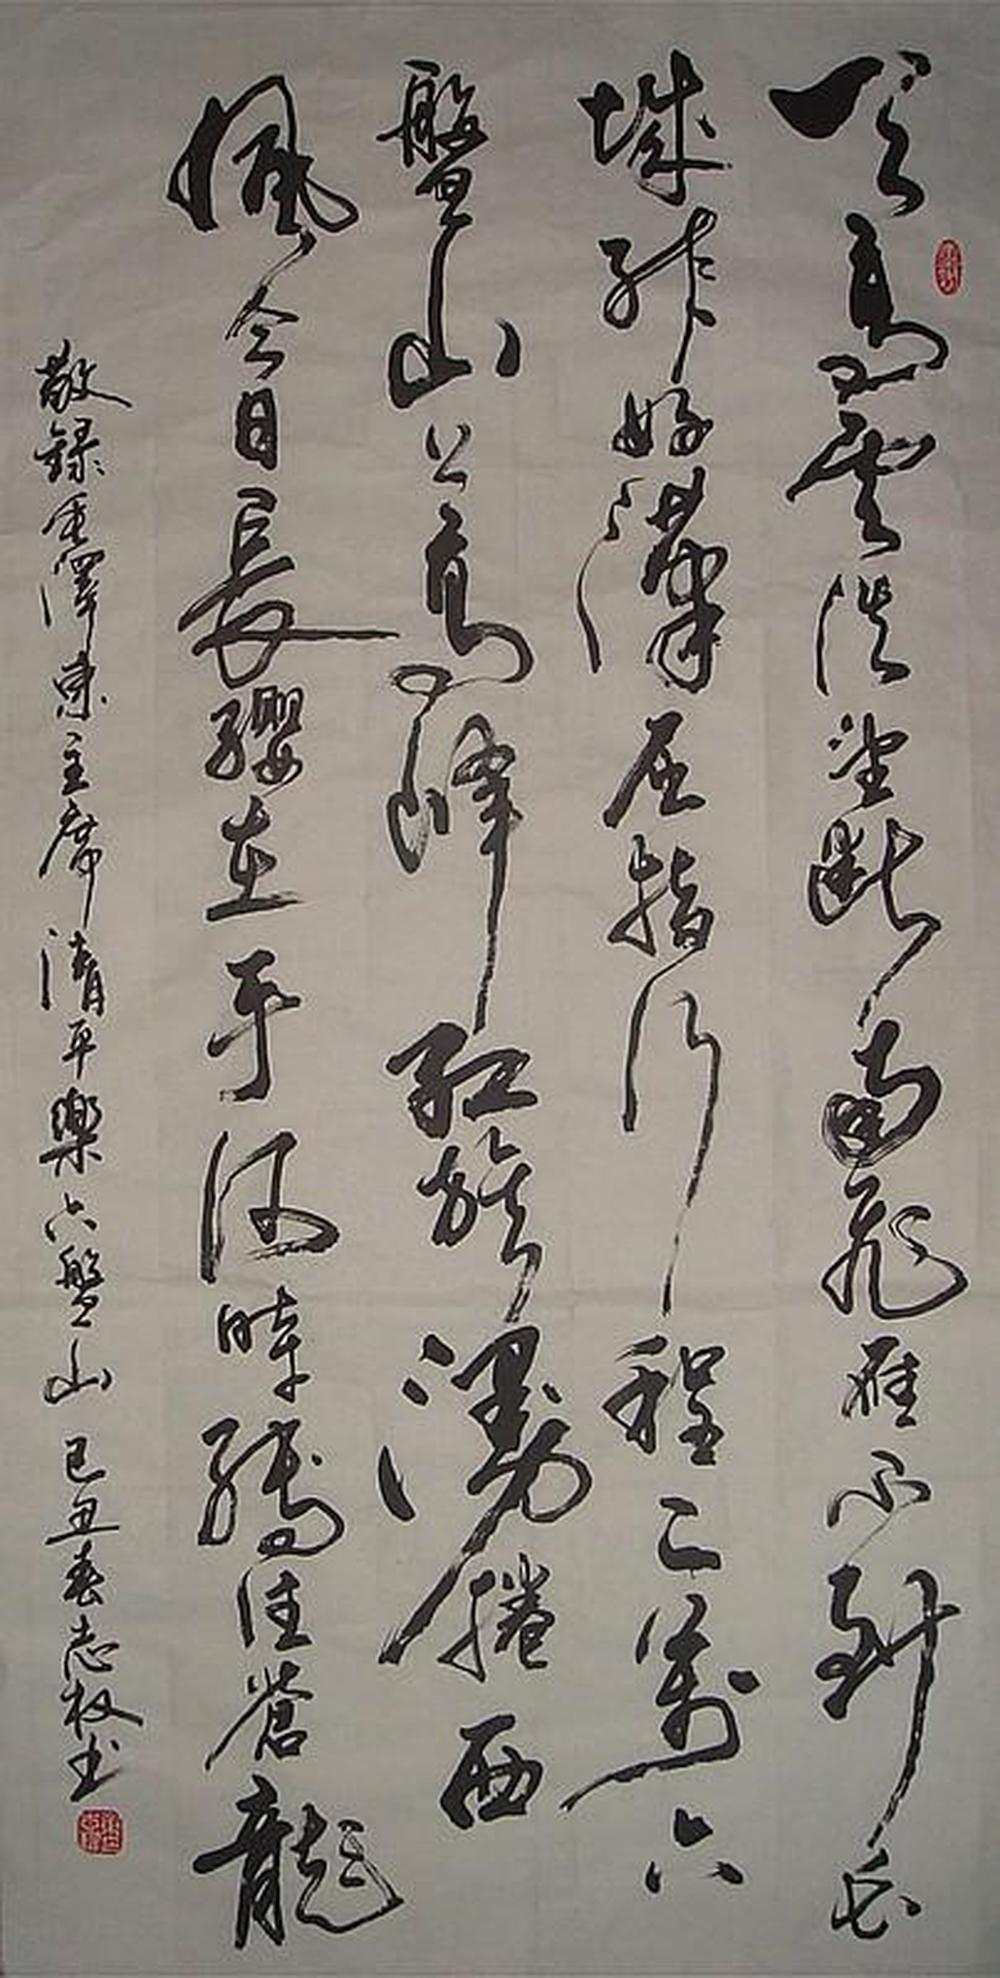 天高雲淡望斷南飛雁不到长
城非好漢屈指行程二萬六
盤山上高峰紅旗漫捲西
風今日長纓在手何時縛住蒼龍
敬録毛澤東主席清平樂六盤山己丑春志权书